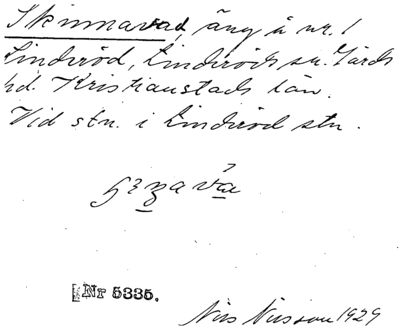 Skinnavad, äng å nr. 1
Linderöd, Linderöds sn. Gärds
hd. Kristianstads län.
Vid stn. i Linderöd stn.
Nr 5335.
Nils Nilsson 1929